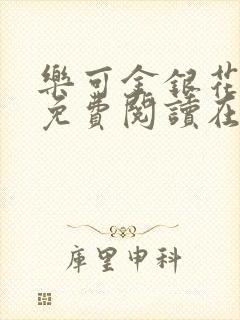 樂可金銀花
免費閱讀在
庫里申科